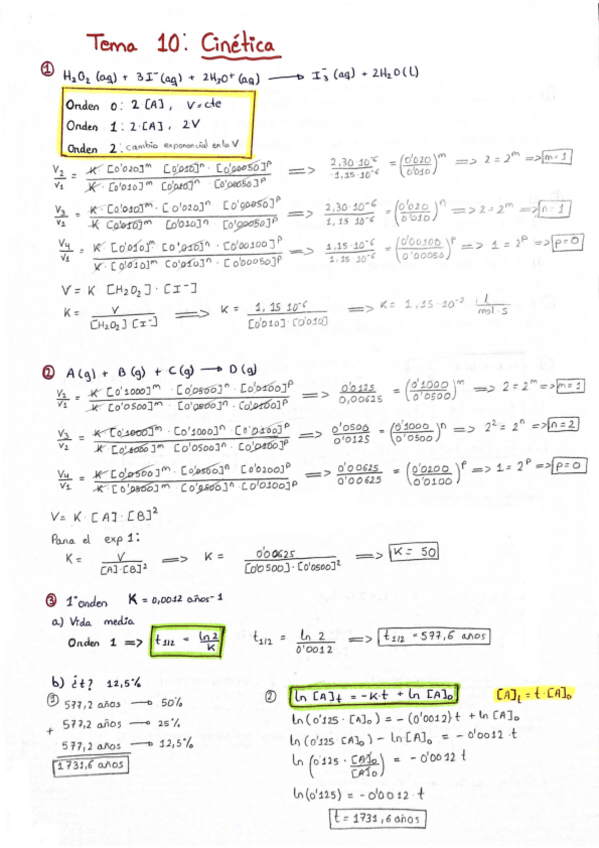 Tema 10: Cinética
① H₂O₂ (aq) + 3I⁻ (aq) + 2H₃O⁺ (aq) ⟶ I₃⁻ (aq) + 2H₂O (l)
Orden 0: 2·[A], V=cte
Orden 1: 2·[A], 2V
Orden 2: cambio exponencial en la V
V₂/V₁ = K·[0'020]ᵐ·[0'010]ⁿ·[0'00050]ᵖ / K·[0'010]ᵐ·[0'010]ⁿ·[0'00050]ᵖ ⟹ 2,30·10⁻⁶ / 1,15·10⁻⁶ = (0'020/0'010)ᵐ ⟹ 2 = 2ᵐ ⟹ m=1
V₃/V₁ = K·[0'010]ᵐ·[0'020]ⁿ·[0'00050]ᵖ / K·[0'010]ᵐ·[0'010]ⁿ·[0'00050]ᵖ ⟹ 2,30·10⁻⁶ / 1,15·10⁻⁶ = (0'020/0'010)ⁿ ⟹ 2 = 2ⁿ ⟹ n=1
V₄/V₁ = K·[0'010]ᵐ·[0'010]ⁿ·[0'00100]ᵖ / K·[0'010]ᵐ·[0'010]ⁿ·[0'00050]ᵖ ⟹ 1,15·10⁻⁶ / 1,15·10⁻⁶ = (0'00100/0'00050)ᵖ ⟹ 1 = 2ᵖ ⟹ p=0
V = K·[H₂O₂]·[I⁻]
K = V / [H₂O₂]·[I⁻] ⟹ K = 1,15·10⁻⁶ / [0'010]·[0'010] ⟹ K = 1,15·10⁻² l / mol·s
② A(g) + B(g) + C(g) ⟶ D(g)
V₂/V₁ = K·[0'1000]ᵐ·[0'0500]ⁿ·[0'0100]ᵖ / K·[0'0500]ᵐ·[0'0500]ⁿ·[0'0100]ᵖ ⟹ 0'0125 / 0,00625 = (0'1000/0'0500)ᵐ ⟹ 2 = 2ᵐ ⟹ m=1
V₃/V₂ = K·[0'1000]ᵐ·[0'1000]ⁿ·[0'0100]ᵖ / K·[0'1000]ᵐ·[0'0500]ⁿ·[0'0100]ᵖ ⟹ 0'0500 / 0'0125 = (0'1000/0'0500)ⁿ ⟹ 2² = 2ⁿ ⟹ n=2
V₄/V₁ = K·[0'0500]ᵐ·[0'0500]ⁿ·[0'0200]ᵖ / K·[0'0500]ᵐ·[0'0500]ⁿ·[0'0100]ᵖ ⟹ 0'00625 / 0'00625 = (0'0200/0'0100)ᵖ ⟹ 1 = 2ᵖ ⟹ p=0
V = K·[A]·[B]²
Para el exp 1:
K = V / [A]·[B]² ⟹ K = 0'00625 / [0'0500]·[0'0500]² ⟹ K = 50
③ 1ᵉʳ orden K = 0,0012 años-1
a) Vida media
Orden 1 ⟹ t₁/₂ = ln 2 / K t₁/₂ = ln 2 / 0'0012 ⟹ t₁/₂ = 577,6 años
b) ¿t? 12,5%
① 577,2 años ⟶ 50%
577,2 años ⟶ 25%
+
577,2 años ⟶ 12,5%
1731,6 años
② ln [A]t = -K·t + ln [A]₀ [A]t = t·[A]₀
ln (0'125·[A]₀) = -(0'0012)t + ln [A]₀
ln (0'125·[A]₀) - ln [A]₀ = -0'0012·t
ln (0'125·[A]₀/[A]₀) = -0'0012 t
ln (0'125) = -0'0012·t
t = 1731,6 años